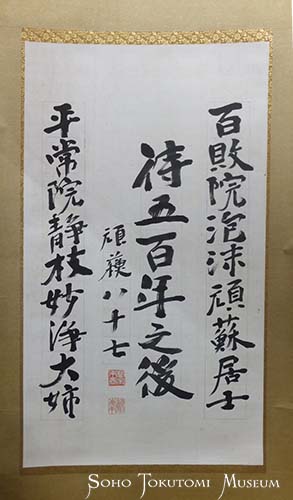 百敗院泡沫頑蘇居士
待五百年之後
頑蘇八十七
平常院静枝妙浄大姉
SOHO TOKUTOMI MUSEUM